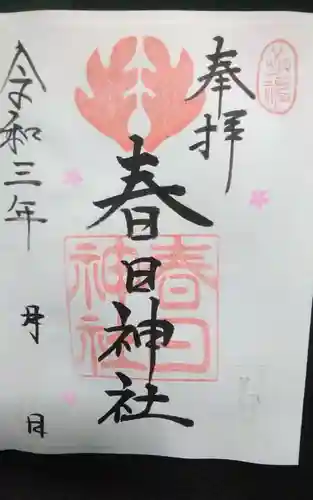 奉拝
春日神社
春日
神社
令和三年
月
日